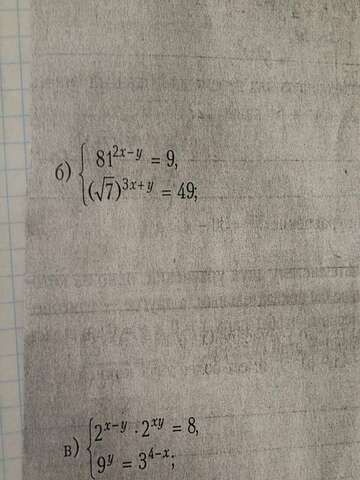 б) { 81^{2x−y} = 9,
(√7)^{3x+y} = 49;
в) { 2^{x−y} · 2^{xy} = 8,
9^y = 3^{4−x};